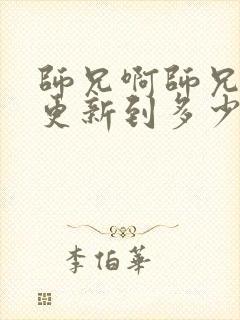 師兄啊師兄
更新到多少
李伯華